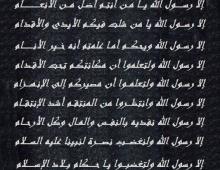 إلا رسول الله يا من أنتم أضل من الأنعام
إلا رسول الله يا من شلت فيكم الأيدي والأقدام
إلا رسول الله ويحكم أما علمتم أنه خير الأنام
إلا رسول الله ولتعلموا أن مكانتكم تحت الأقدام
إلا رسول الله ولتعلموا أن مصيركم إلى الإنهزام
إلا رسول الله وانتظروا من المنتقم أشد الإنتقام
إلا رسول الله نفديه بالنفس والمال وكل الأرحام
إلا رسول الله ولنغضب نصرة لنبينا عليه السلام
إلا رسول الله ولتغضبوا يا حكام بلاد الإسلام